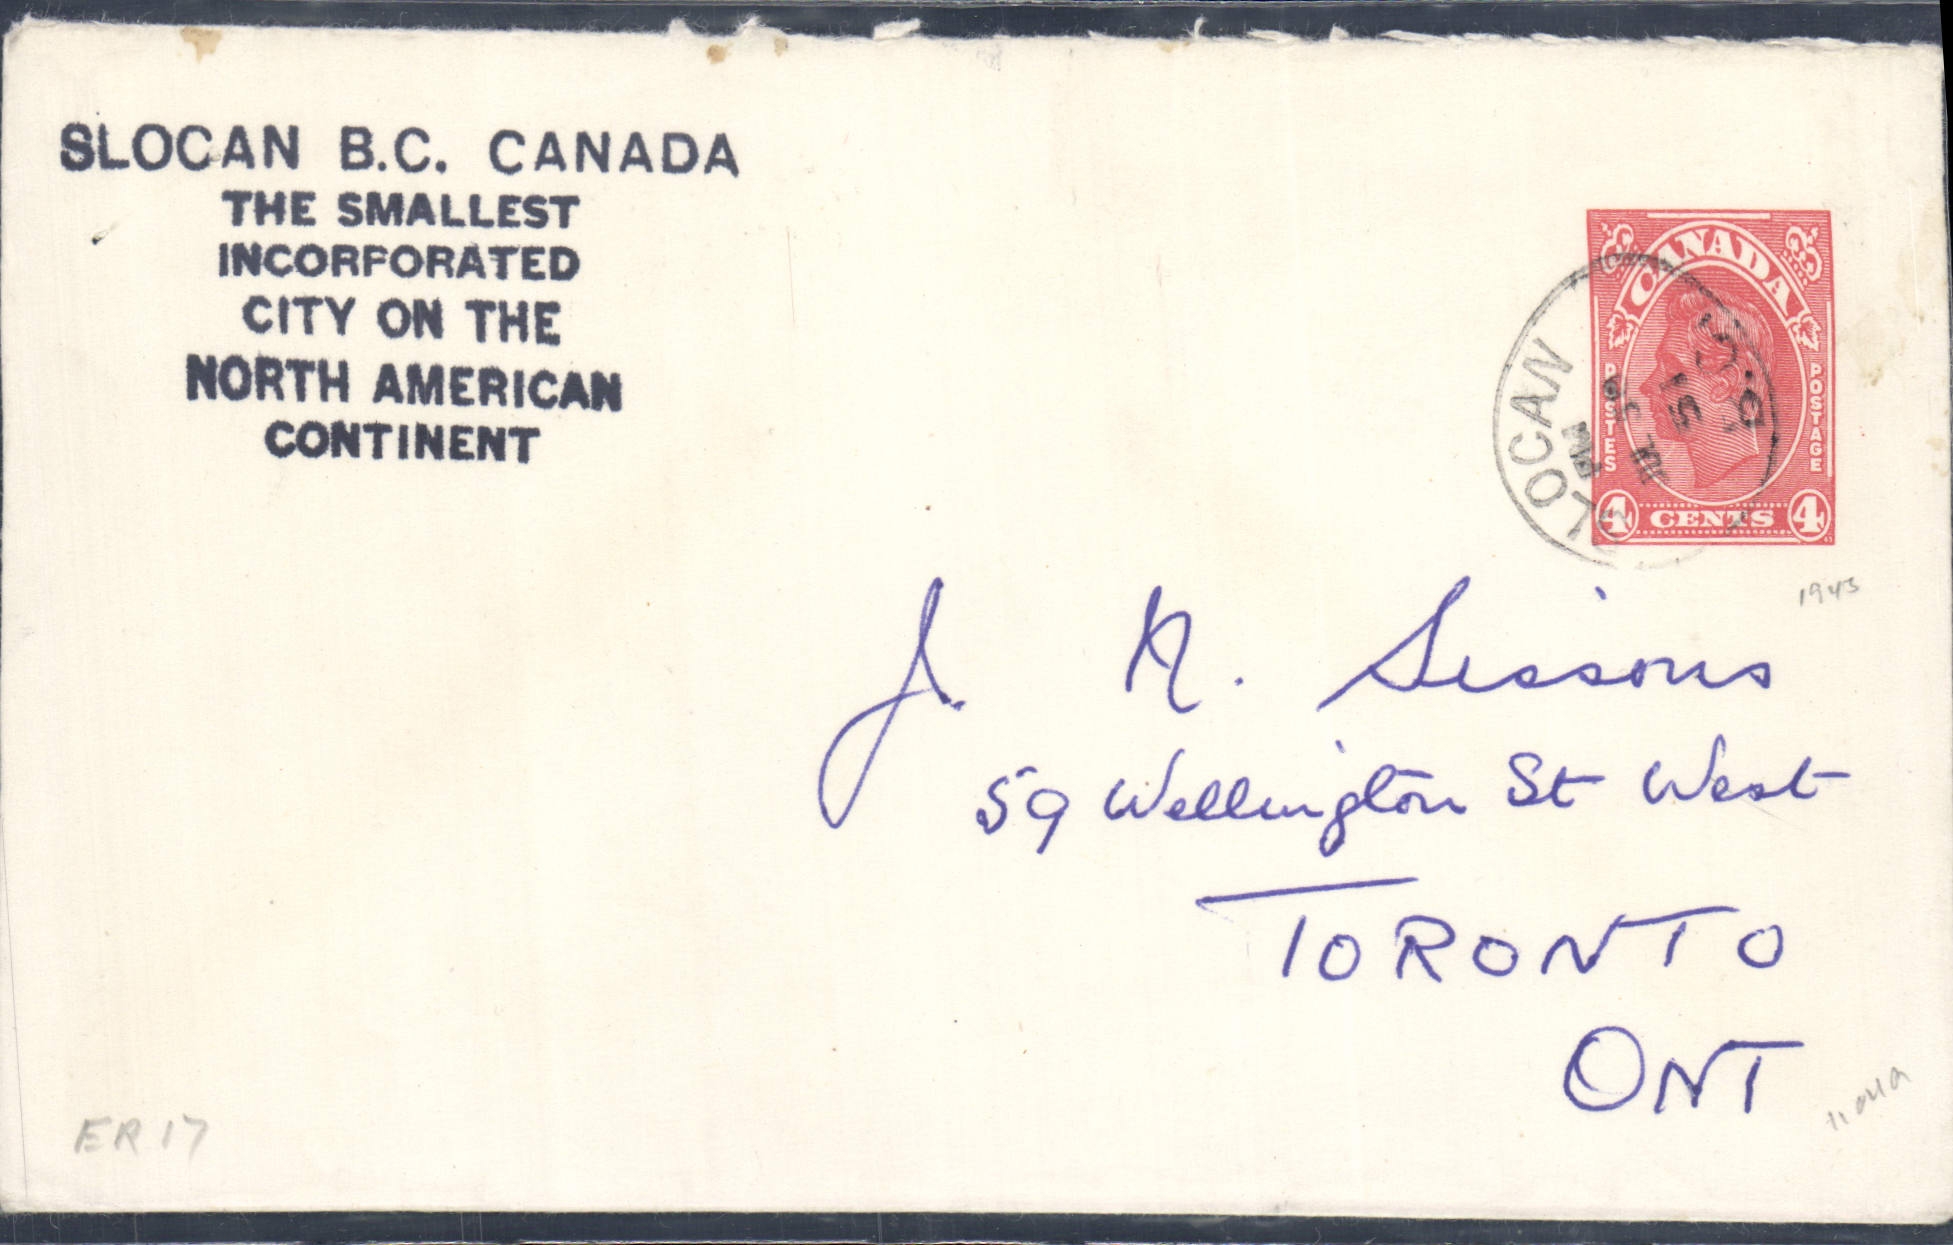 SLOCAN B.C. CANADA
THE SMALLEST
INCORPORATED
CITY ON THE
NORTH AMERICAN
CONTINENT
CANADA
POSTES
POSTAGE
4 CENTS 4
SLOCAN
PM
51
B.C.
1943
J. N. Sissons
59 Wellington St West
TORONTO
ONT
ER 17